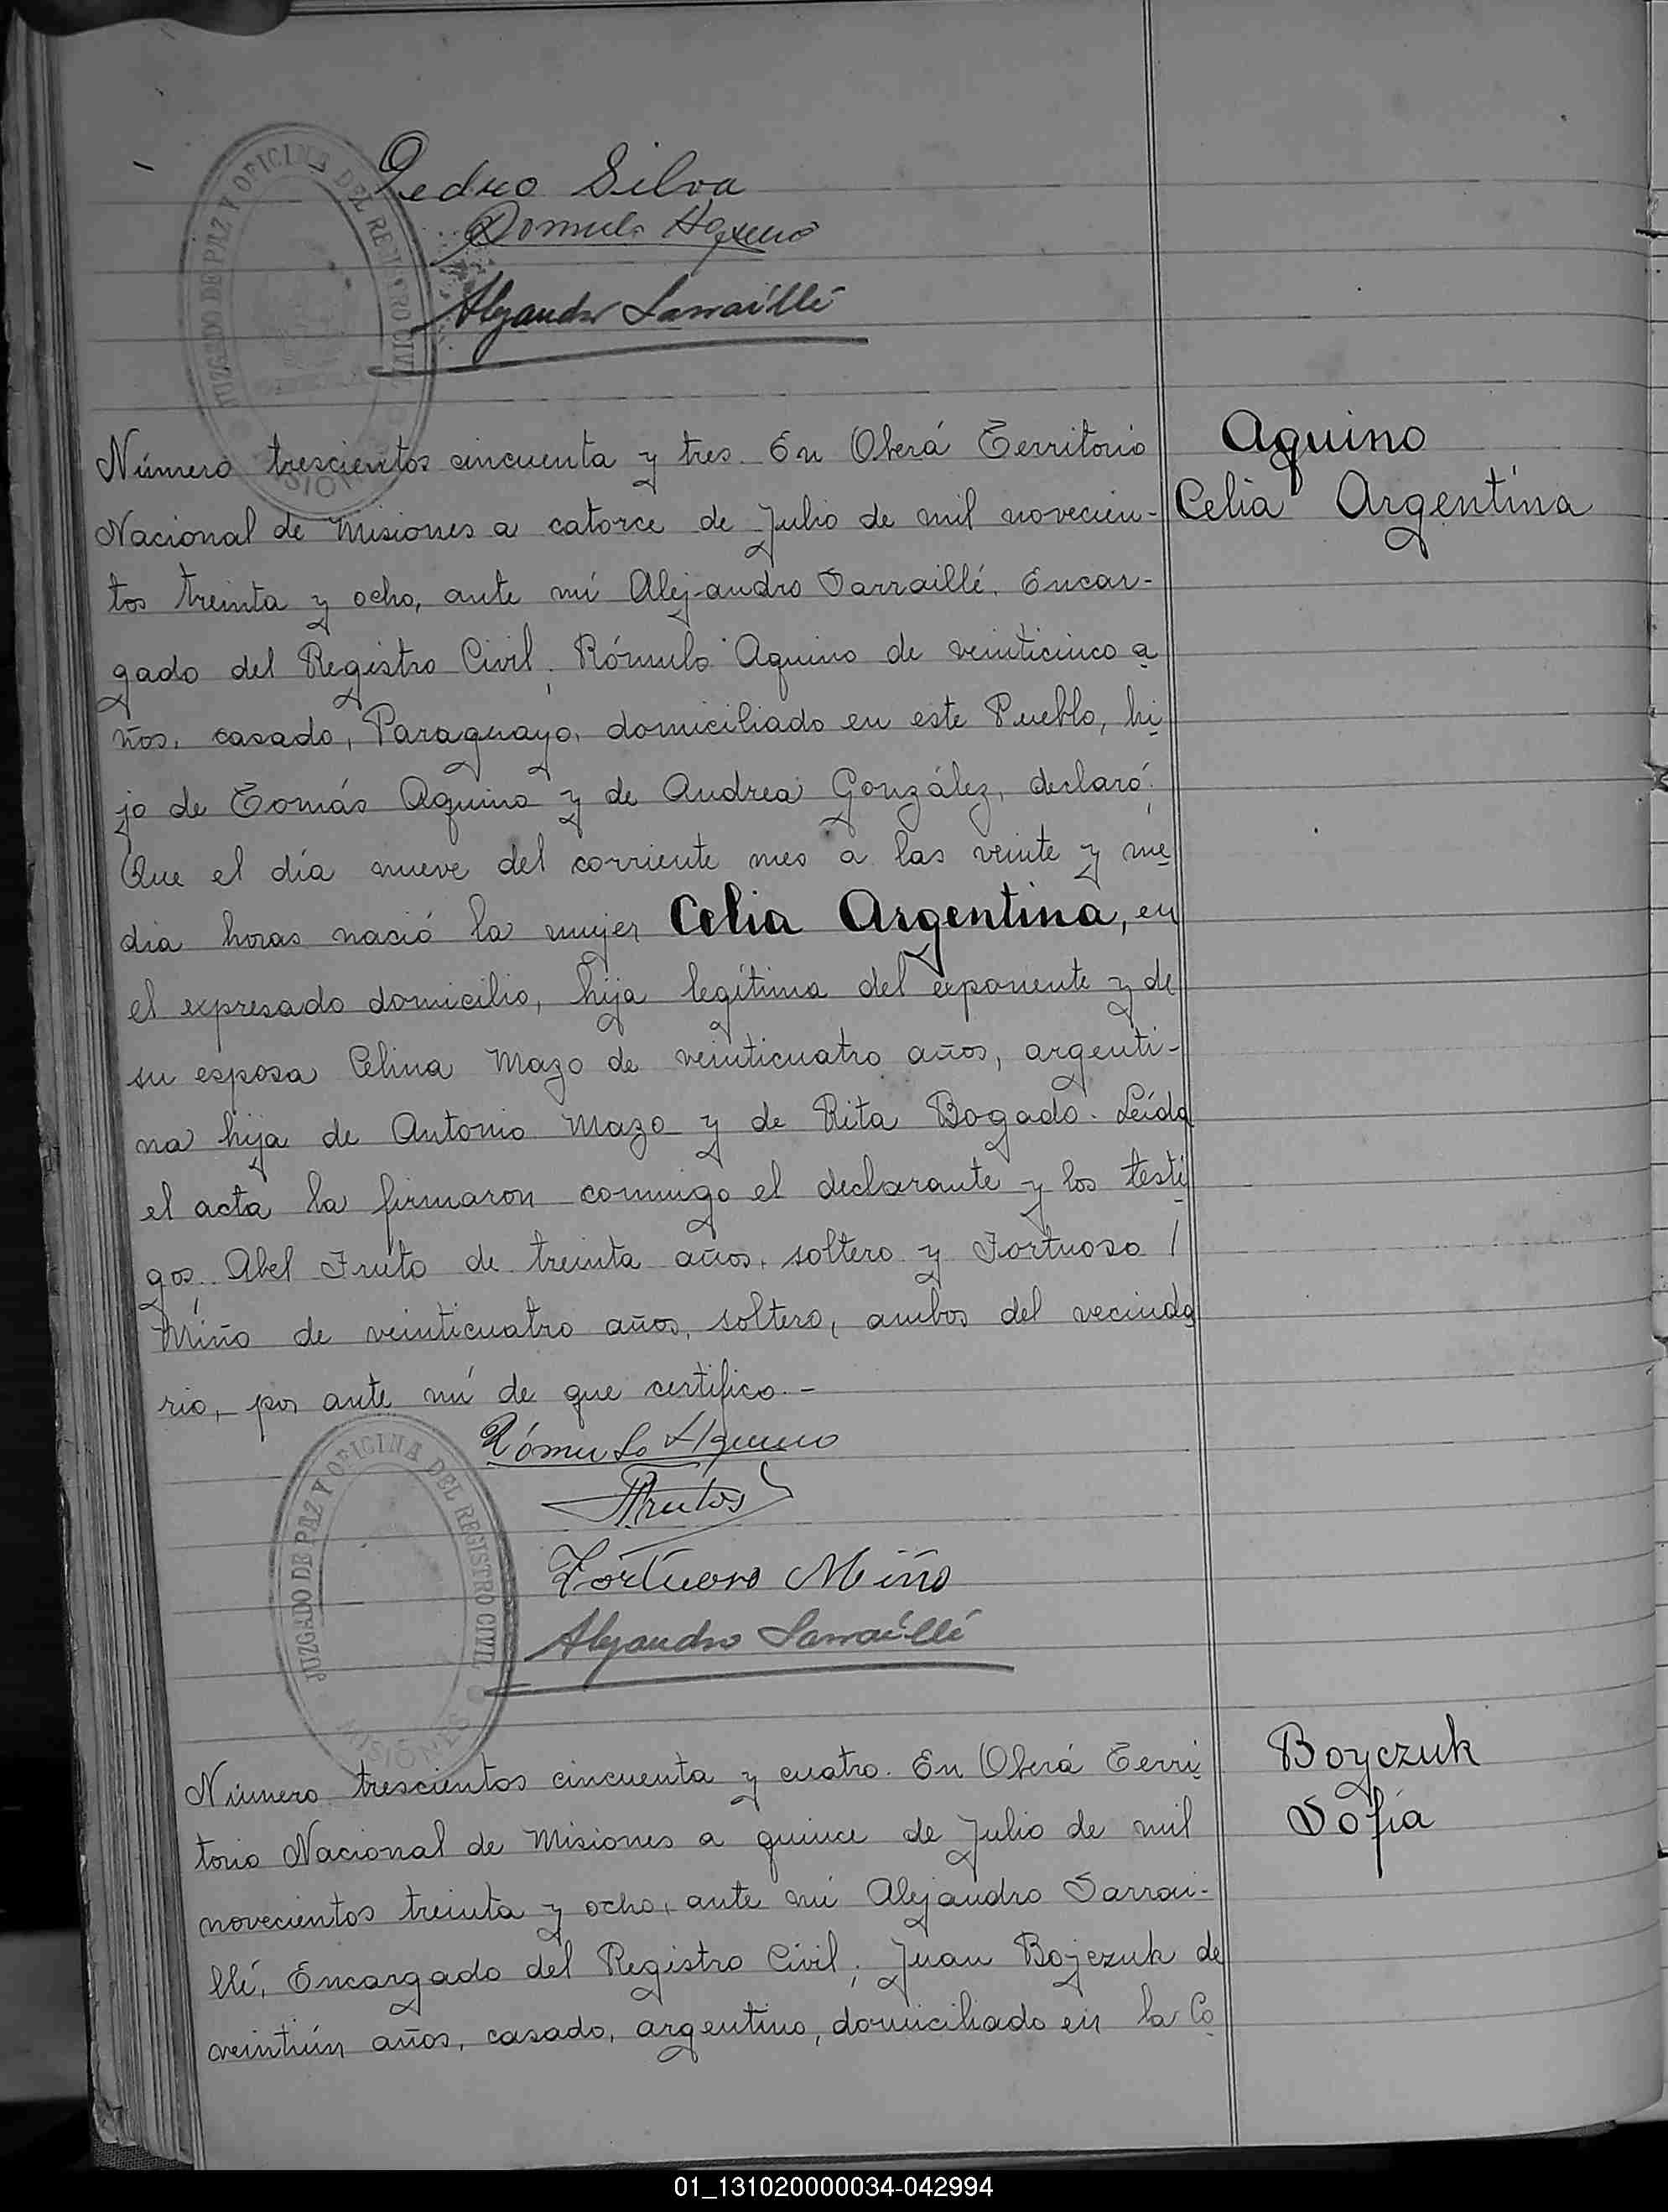 JUZGADO DE PAZ Y OFICINA DEL REGISTRO CIVIL
MISIONES
Pedro Silva
Alejandro Sarraillé
Número trescientos cincuenta y tres. En Oberá Territorio
Aquino
Nacional de Misiones a catorce de Julio de mil novecien-
Celia Argentina
tos treinta y ocho, ante mí Alejandro Sarraillé, Encar-
gado del Registro Civil; Rómulo Aquino de veinticinco a
ños, casado, Paraguayo, domiciliado en este Pueblo, hi
jo de Tomás Aquino y de Andrea González, declaró:
Que el día nueve del corriente mes a las veinte y me
dia horas nació la mujer Celia Argentina, en
el expresado domicilio, hija legítima del exponente y de
su esposa Celina Mazo de veinticuatro años, argenti-
na hija de Antonio Mazo y de Rita Bogado. Leída
el acta la firmaron conmigo el declarante y los testi
gos Abel Fruto de treinta años, soltero y Fortuoso /
Miño de veinticuatro años, soltero, ambos del vecinda
rio, por ante mí de que certifico.-
Rómulo Aquino
Frutos
Fortuoso Miño
Alejandro Sarraillé
JUZGADO DE PAZ Y OFICINA DEL REGISTRO CIVIL
MISIONES
Número trescientos cincuenta y cuatro. En Oberá Terri
Boyczuk
torio Nacional de Misiones a quince de Julio de mil
Sofía
novecientos treinta y ocho, ante mí Alejandro Sarrai-
llé, Encargado del Registro Civil; Juan Bojczuk de
veintiún años, casado, argentino, domiciliado en la Co
01_131020000034-042994